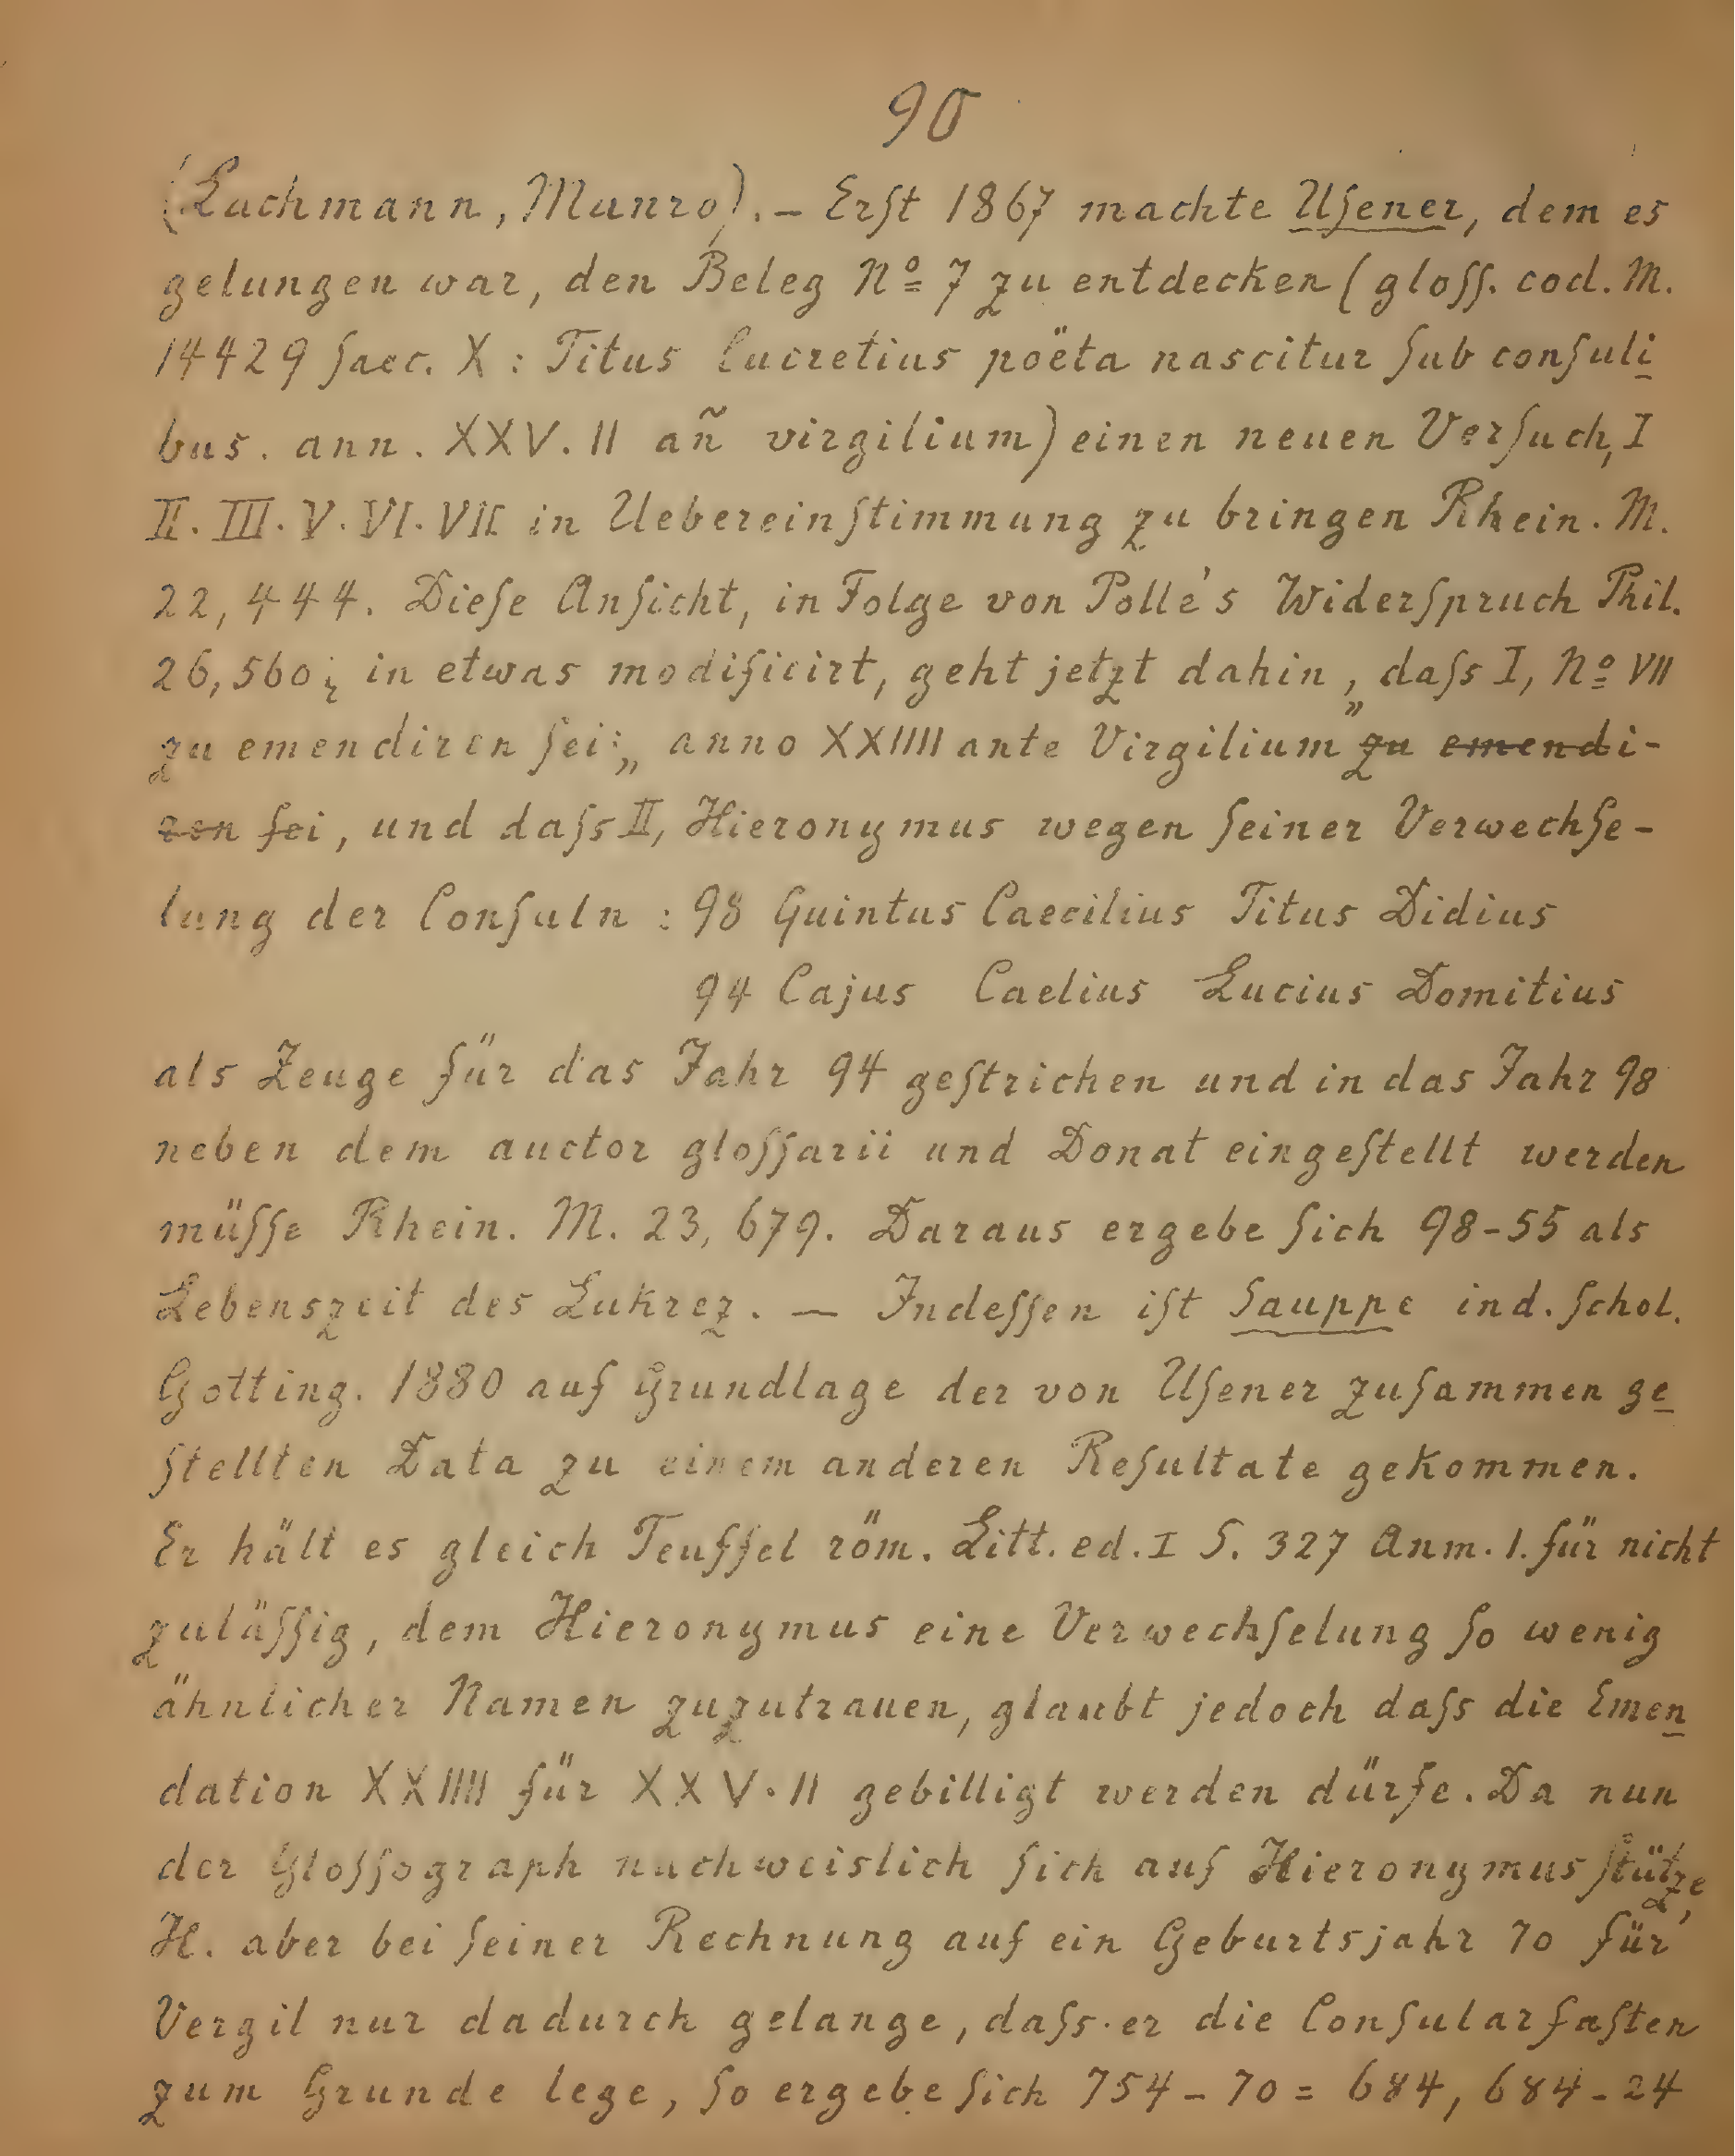 90
(Lachmann, Munro). – Erſt 1867 machte Uſener, dem es
gelungen war, den Beleg Nº 7 zu entdecken (gloſſ. cod. M.
14429 ſaec. X : Titus lucretius poëta nascitur ſub conſuli
bus. ann. XXV. II añ virgilium) einen neuen Verſuch, I
II. III. V. VI. VII in Uebereinſtimmung zu bringen Rhein. M.
22, 444. Dieſe Anſicht, in Folge von Polle's Widerſpruch Phil.
26, 560; in etwas modificirt, geht jetzt dahin, „daſs I, Nº VII
zu emendiren ſei: „ anno XXIIII ante Virgilium" zu emendi-
ren ſei, und daſs II, Hieronymus wegen ſeiner Verwechſe-
lung der Conſuln : 98 Quintus Caecilius Titus Didius
94 Cajus Caelius Lucius Domitius
als Zeuge für das Jahr 94 geſtrichen und in das Jahr 98
neben dem auctor gloſſarii und Donat eingeſtellt werden
müſſe Rhein. M. 23, 679. Daraus ergebe ſich 98–55 als
Lebenszeit des Lukrez. — Indeſſen iſt Sauppe ind. ſchol.
Gotting. 1880 auf Grundlage der von Uſener zuſammen ge
ſtellten Data zu einem anderen Reſultate gekommen.
Er hält es gleich Teuffel röm. Litt. ed. I S. 327 Anm. 1. für nicht
zuläſſig, dem Hieronymus eine Verwechſelung ſo wenig
ähnlicher Namen zuzutrauen, glaubt jedoch daſs die Emen
dation XXIIII für XXV.II gebilligt werden dürfe. Da nun
der Gloſſograph nachweislich ſich auf Hieronymus ſtütze,
H. aber bei ſeiner Rechnung auf ein Geburtsjahr 70 für
Vergil nur dadurch gelange, daſs er die Conſularfaſten
zum Grunde lege, ſo ergebe ſich 754 – 70 = 684, 684 – 24